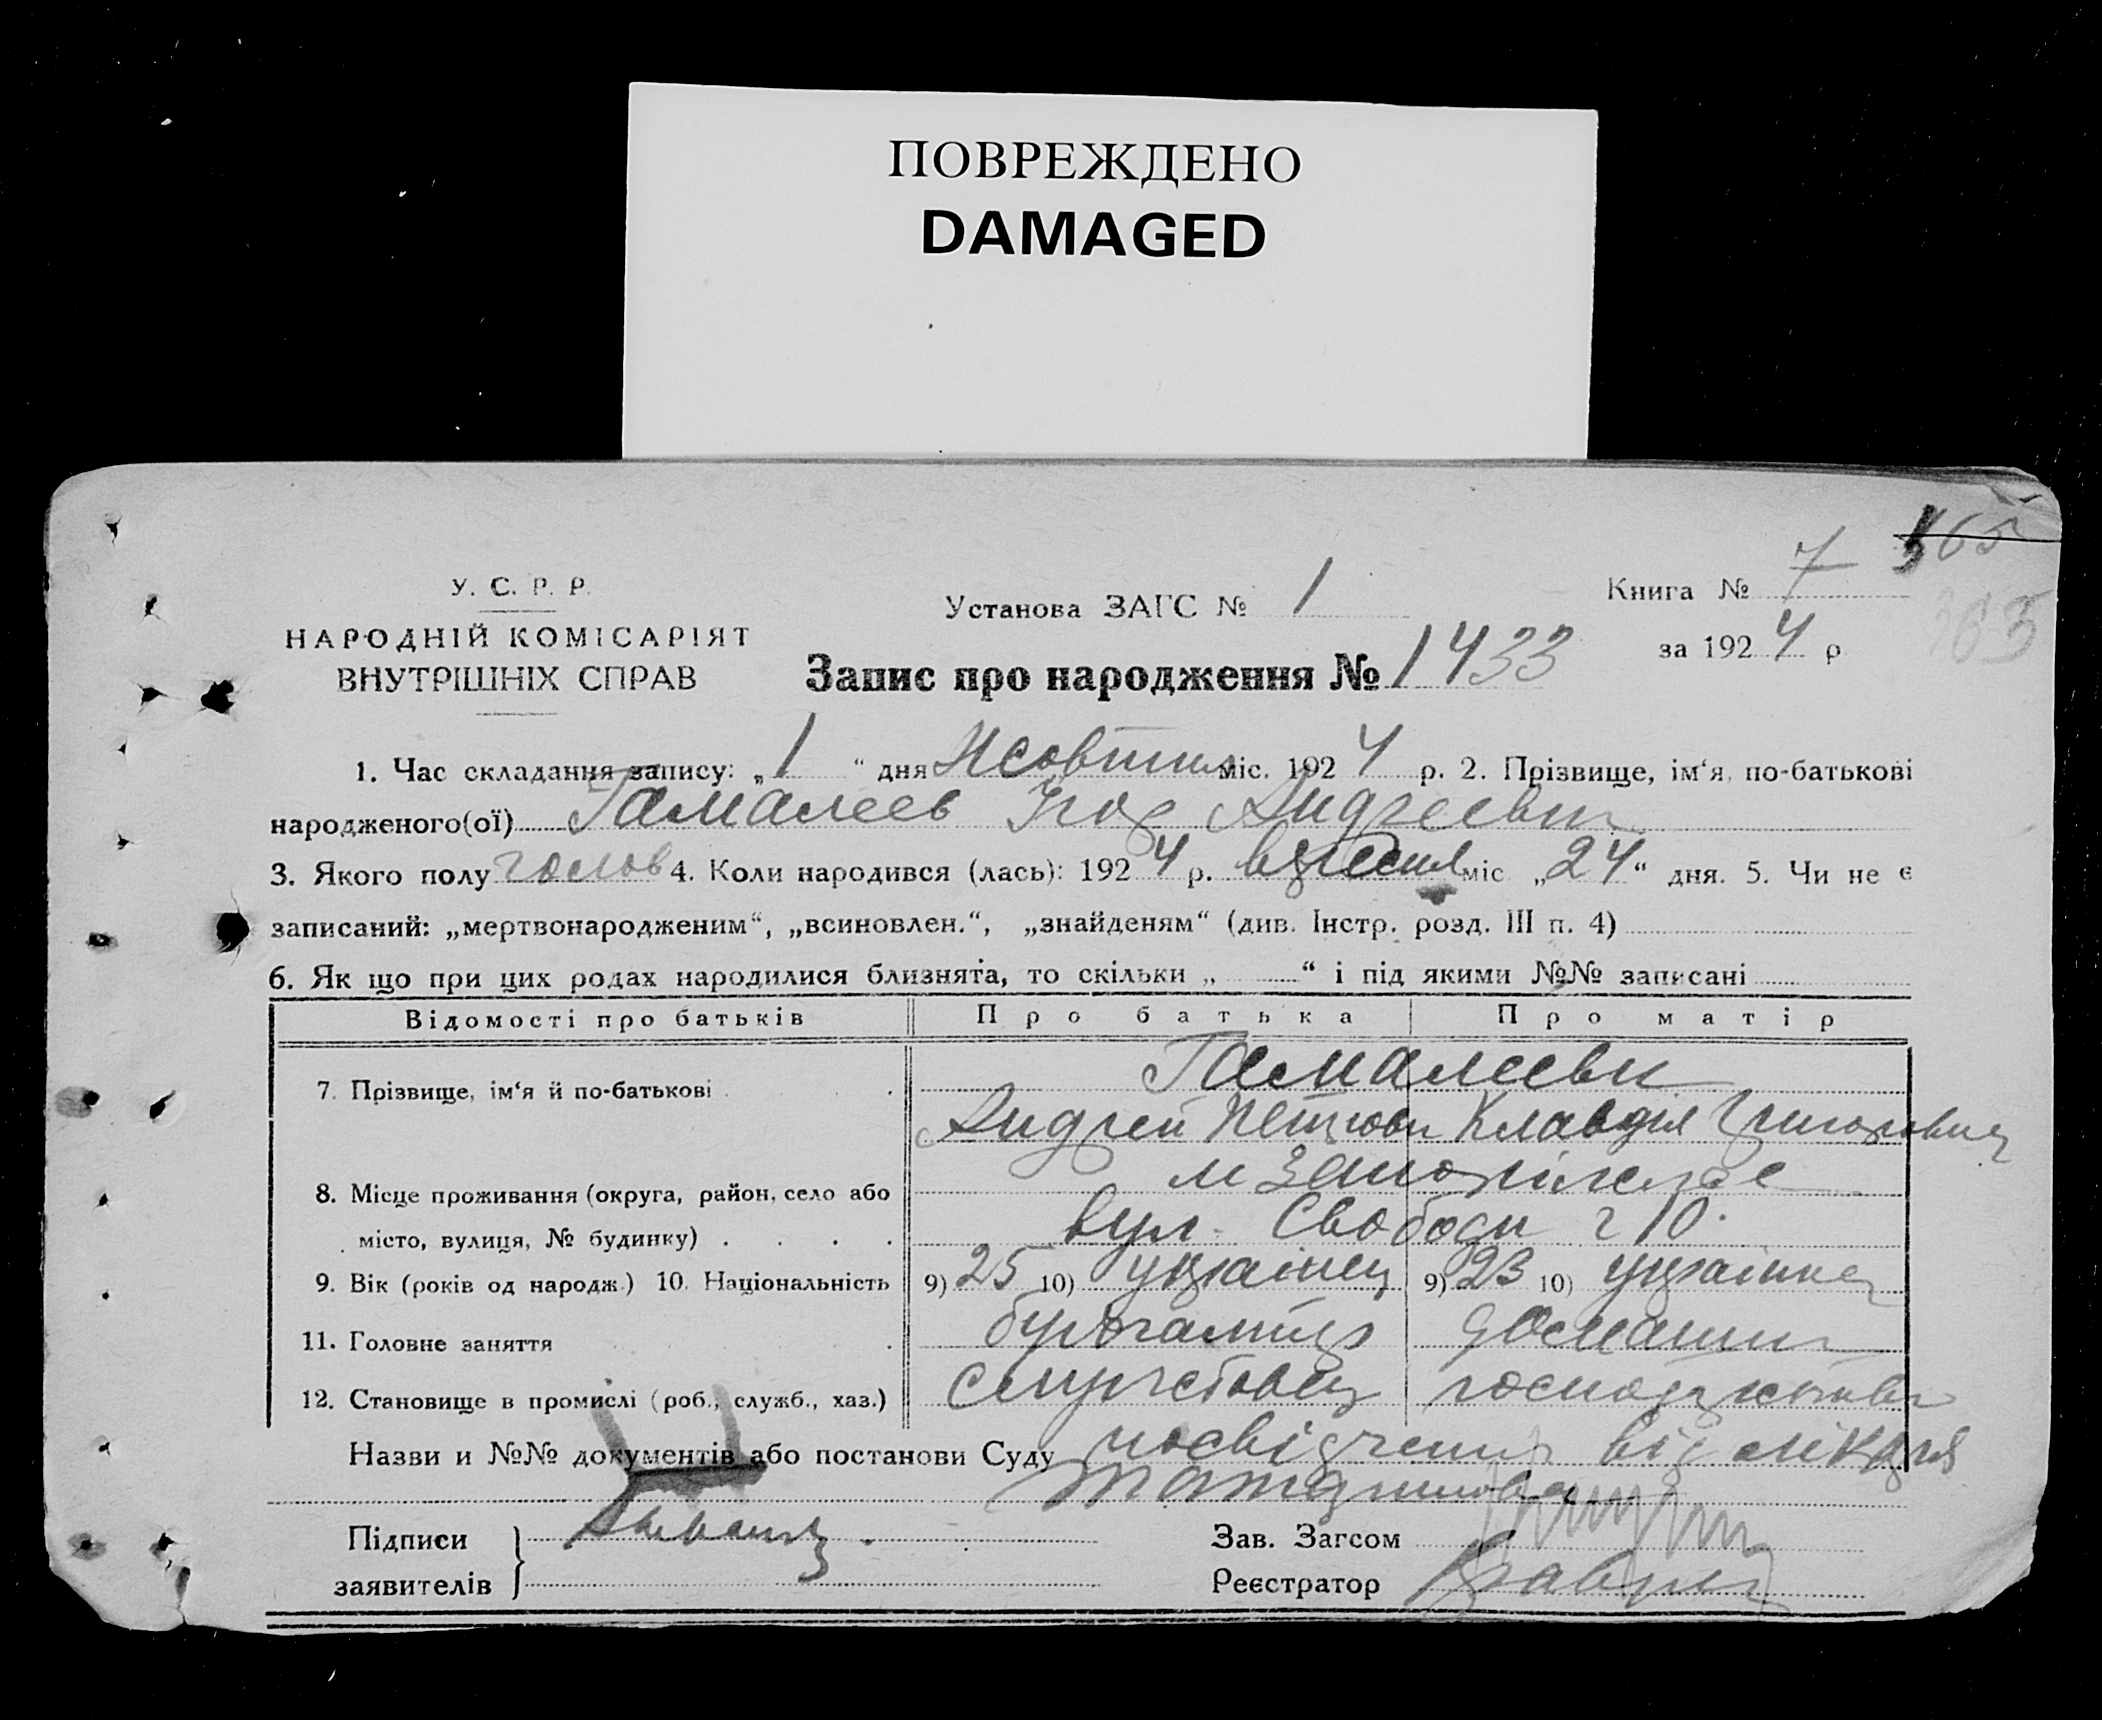 ПОВРЕЖДЕНО
DAMAGED
165
У. С. Р. Р.
НАРОДНІЙ КОМІСАРІЯТ
ВНУТРІШНІХ СПРАВ
Установа ЗАГС № 1
Книга № 7
за 1924 р
Запис про народження № 1433
1. Час складання запису: „1“ дня Жовтня міс. 1924 р. 2. Прізвище, ім‘я, по-батькові
народженого(ої) Гамалеев Андреевич
3. Якого полу 4. Коли народився (лась): 1924 р. вересня міс „24“ дня. 5. Чи не є
записаний: „мертвонародженим“, „всиновлен.“, „знайденям“ (див. Інстр. розд. III п. 4)
6. Як що при цих родах народилися близнята, то скільки „ “ і під якими №№ записані
Відомості про батьків Про батька Про матір
7. Прізвище, ім‘я й по-батькові Гамалееви
Андрей Петрови Клавдія
8. Місце проживання (округа, район, село або м
місто, вулиця, № будинку) вул. Свободи 10.
9. Вік (років од народж.) 10. Національність 9) 25 10) українец 9) 23 10) українка
11. Головне заняття
12. Становище в промислі (роб., служб., хаз.)
Назви и №№ документів або постанови Суду посвідчення від лікаря
Підписи
заявителів
Зав. Загсом
Реєстратор